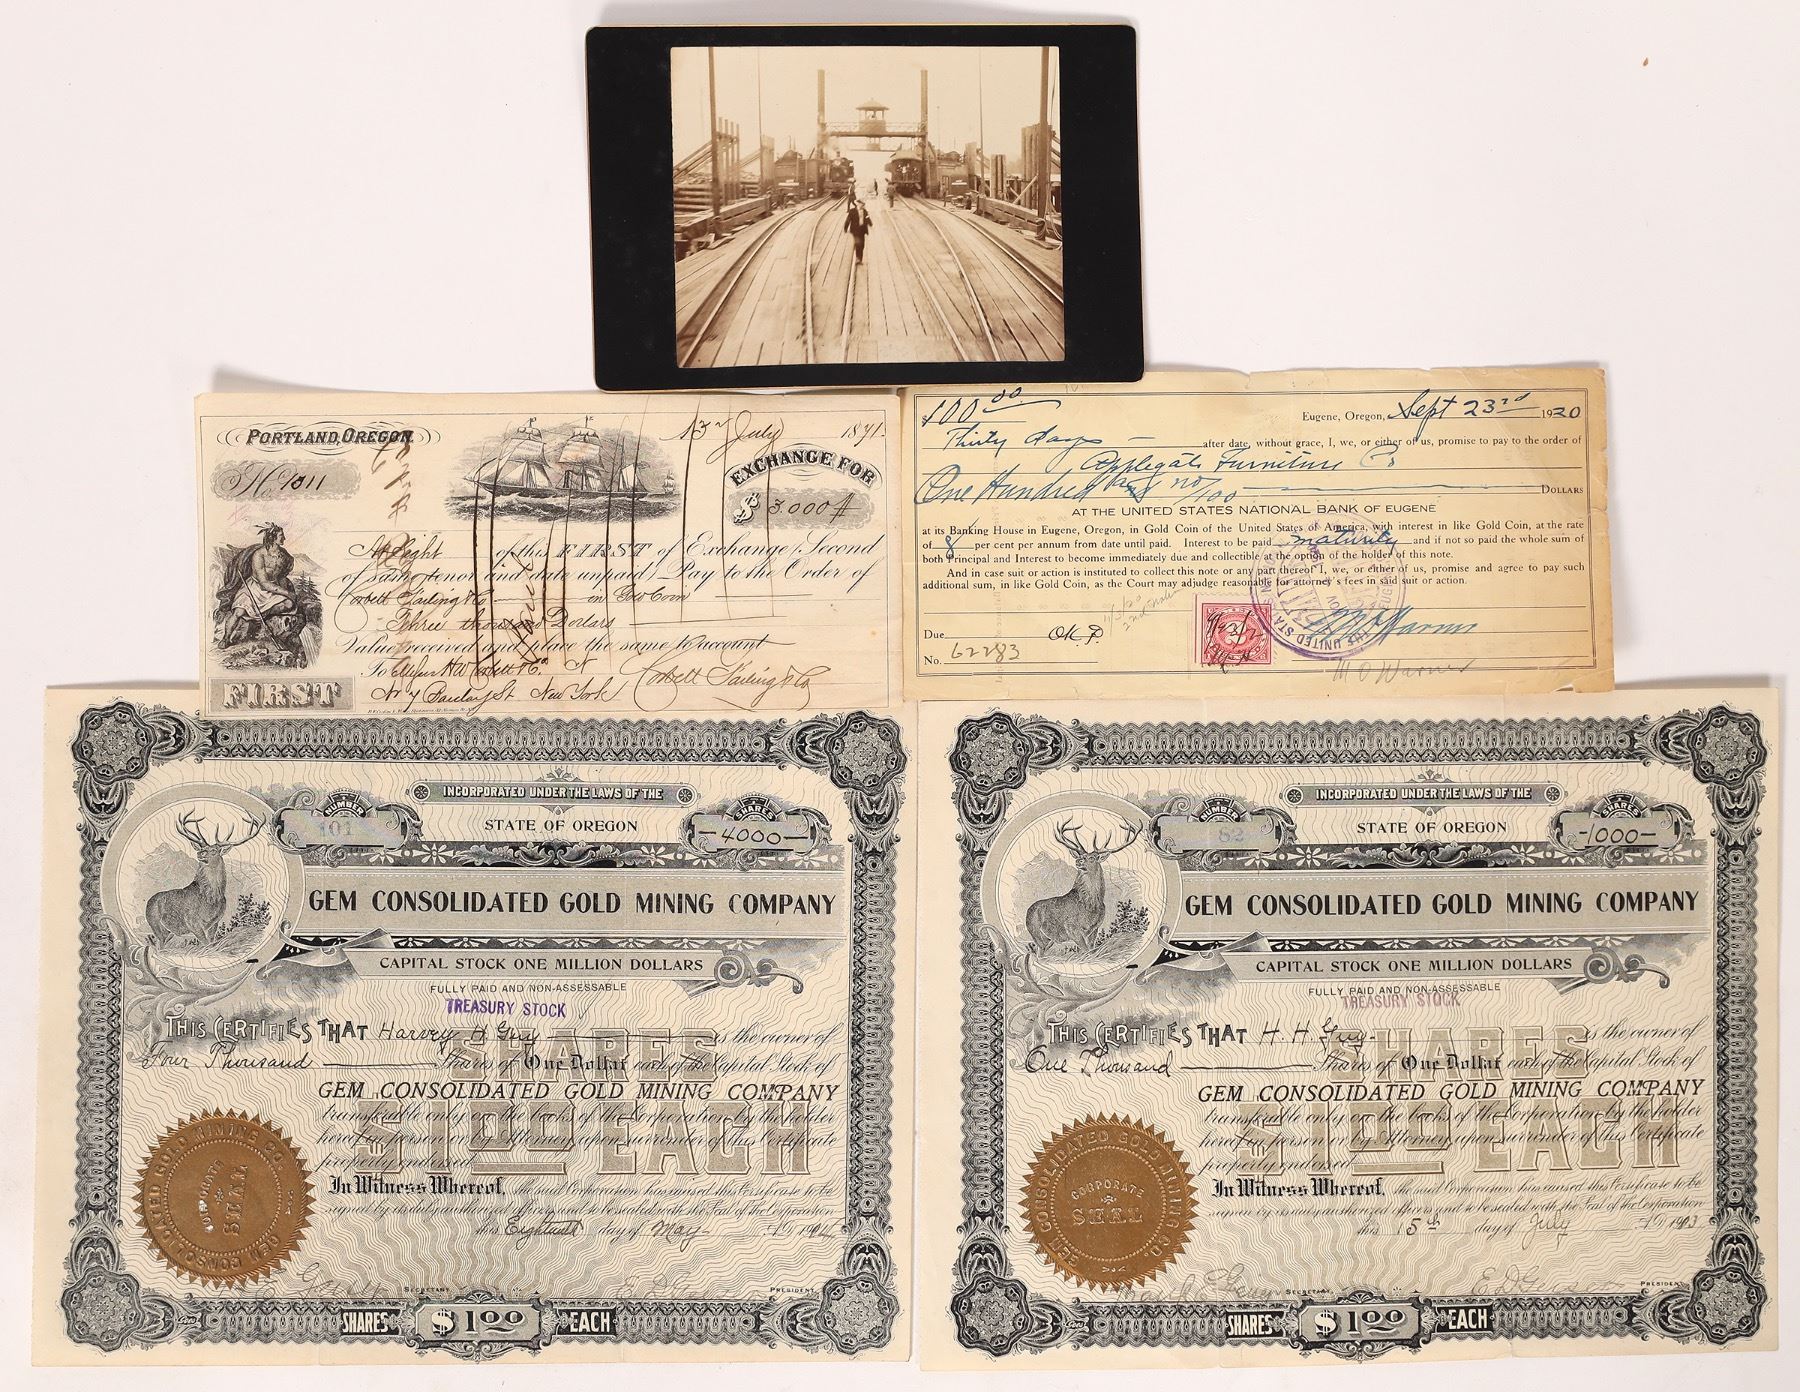 PORTLAND, OREGON
13 July 1871.
No. 9011
EXCHANGE FOR
$ 3,000
At Sight of this FIRST of Exchange (Second
of same tenor and date unpaid) Pay to the Order of
Corbett Failing & Co in Gold Coin
Three thousand Dollars
Value received and place the same to account
To H W Corbett & Co. Corbett Failing & Co
New York
FIRST
$100 00 Eugene, Oregon, Sept 23rd 1920
Thirty days after date, without grace, I, we, or either of us, promise to pay to the order of
Applegate Furniture Co
One Hundred & no/100 DOLLARS
AT THE UNITED STATES NATIONAL BANK OF EUGENE
at its Banking House in Eugene, Oregon, in Gold Coin of the United States of America, with interest in like Gold Coin, at the rate
of 8 per cent per annum from date until paid. Interest to be paid maturity and if not so paid the whole sum of
both Principal and Interest to become immediately due and collectible at the option of the holder of this note.
And in case suit or action is instituted to collect this note or any part thereof I, we, or either of us, promise and agree to pay such
additional sum, in like Gold Coin, as the Court may adjudge reasonable for attorney's fees in said suit or action.
Due
No. 62283
M O Warner
INCORPORATED UNDER THE LAWS OF THE
STATE OF OREGON
NUMBER
101
SHARES
-4000-
GEM CONSOLIDATED GOLD MINING COMPANY
CAPITAL STOCK ONE MILLION DOLLARS
FULLY PAID AND NON-ASSESSABLE
TREASURY STOCK
THIS CERTIFIES THAT Harvey H. Guy is the owner of
Four Thousand Shares of One Dollar each of the Capital Stock of
GEM CONSOLIDATED GOLD MINING COMPANY
transferable only on the books of the Corporation by the holder
hereof in person or by Attorney upon surrender of this Certificate
properly endorsed
SHARES $1.00 EACH
In Witness Whereof, the said Corporation has caused this Certificate to be
signed by its duly authorized officers and to be sealed with the Seal of the Corporation
this Eighteenth day of May A.D. 1904
GEM CONSOLIDATED GOLD MINING CO.
CORPORATE
SEAL
SECRETARY PRESIDENT
SHARES $1.00 EACH
INCORPORATED UNDER THE LAWS OF THE
STATE OF OREGON
NUMBER
82
SHARES
-1000-
GEM CONSOLIDATED GOLD MINING COMPANY
CAPITAL STOCK ONE MILLION DOLLARS
FULLY PAID AND NON-ASSESSABLE
TREASURY STOCK
THIS CERTIFIES THAT H. H. Guy is the owner of
One Thousand Shares of One Dollar each of the Capital Stock of
GEM CONSOLIDATED GOLD MINING COMPANY
transferable only on the books of the Corporation by the holder
hereof in person or by Attorney upon surrender of this Certificate
properly endorsed
SHARES $1.00 EACH
In Witness Whereof, the said Corporation has caused this Certificate to be
signed by its duly authorized officers and to be sealed with the Seal of the Corporation
this 15th day of July A.D. 1903
GEM CONSOLIDATED GOLD MINING CO.
CORPORATE
SEAL
SECRETARY PRESIDENT
SHARES $1.00 EACH